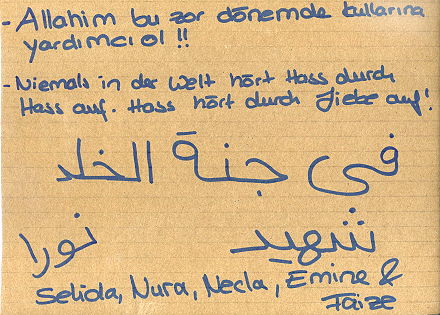 - Allahim bu zor dönemde kullarina
yardımcı ol !!
- Niemals in der Welt hört Hass durch
Hass auf. Hass hört durch Liebe auf!
فى جنة الخلد
شهيد نورا
Selida, Nura, Necla, Emine &
Faize